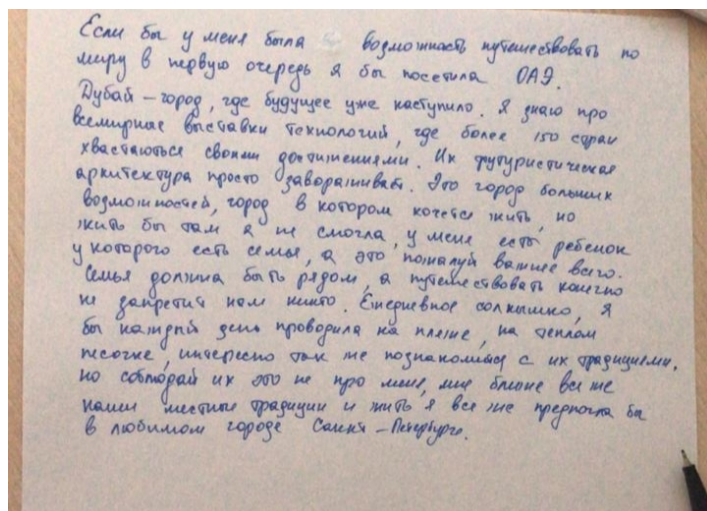 Если бы у меня была возможность путешествовать по
миру в первую очередь я бы посетила ОАЭ.
Дубай – город, где будущее уже наступило. Я знаю про
всемирные выставки технологий, где более 150 стран
хвастаються своими достижениями. Их футуристическая
архитектура просто завораживает. Это город больших
возможностей, город в котором хочется жить, но
жить бы там я не смогла, у меня есть ребенок
у которого есть семья, а это пожалуй важнее всего.
Семья должна быть рядом, а путешествовать конечно
не запретит нам никто. Ежедневное солнышко, я
бы каждый день проводила на пляже, на теплом
песочке, интересно так же познакомиться с их традициями,
но соблюдай их это не про меня, мне ближе все же
наши местные традиции и жить я все же предпочла бы
в любимом городе Санкт-Петербурге.